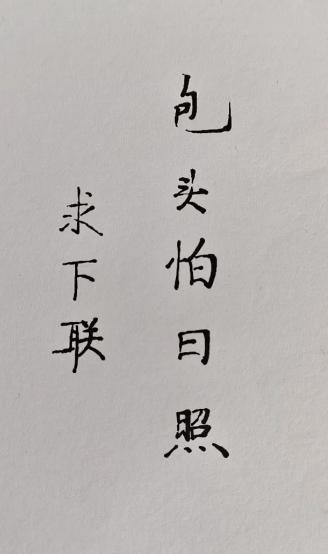 包头怕日照
求下联